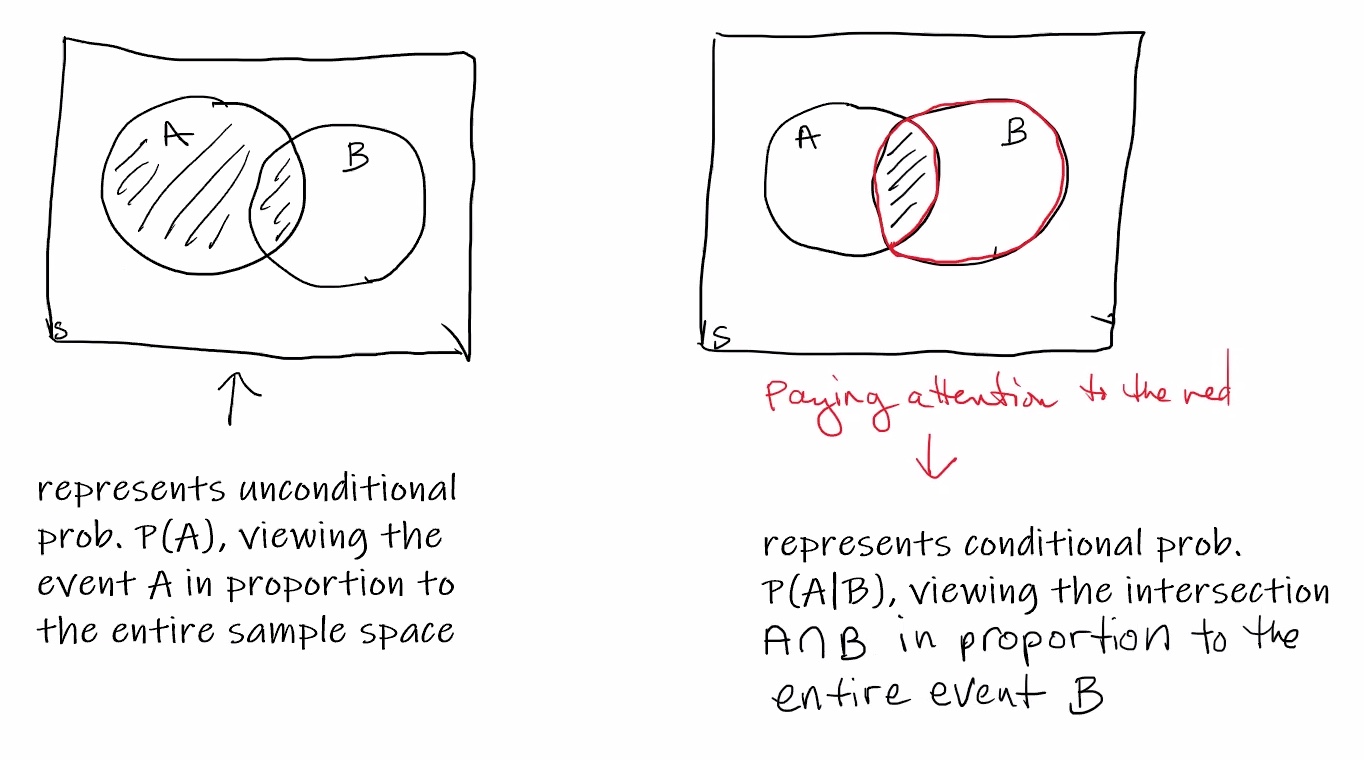 A
B
S
represents unconditional
prob. P(A), viewing the
event A in proportion to
the entire sample space
A
B
S
Paying attention to the red
represents conditional prob.
P(A|B), viewing the intersection
A∩B in proportion to the
entire event B